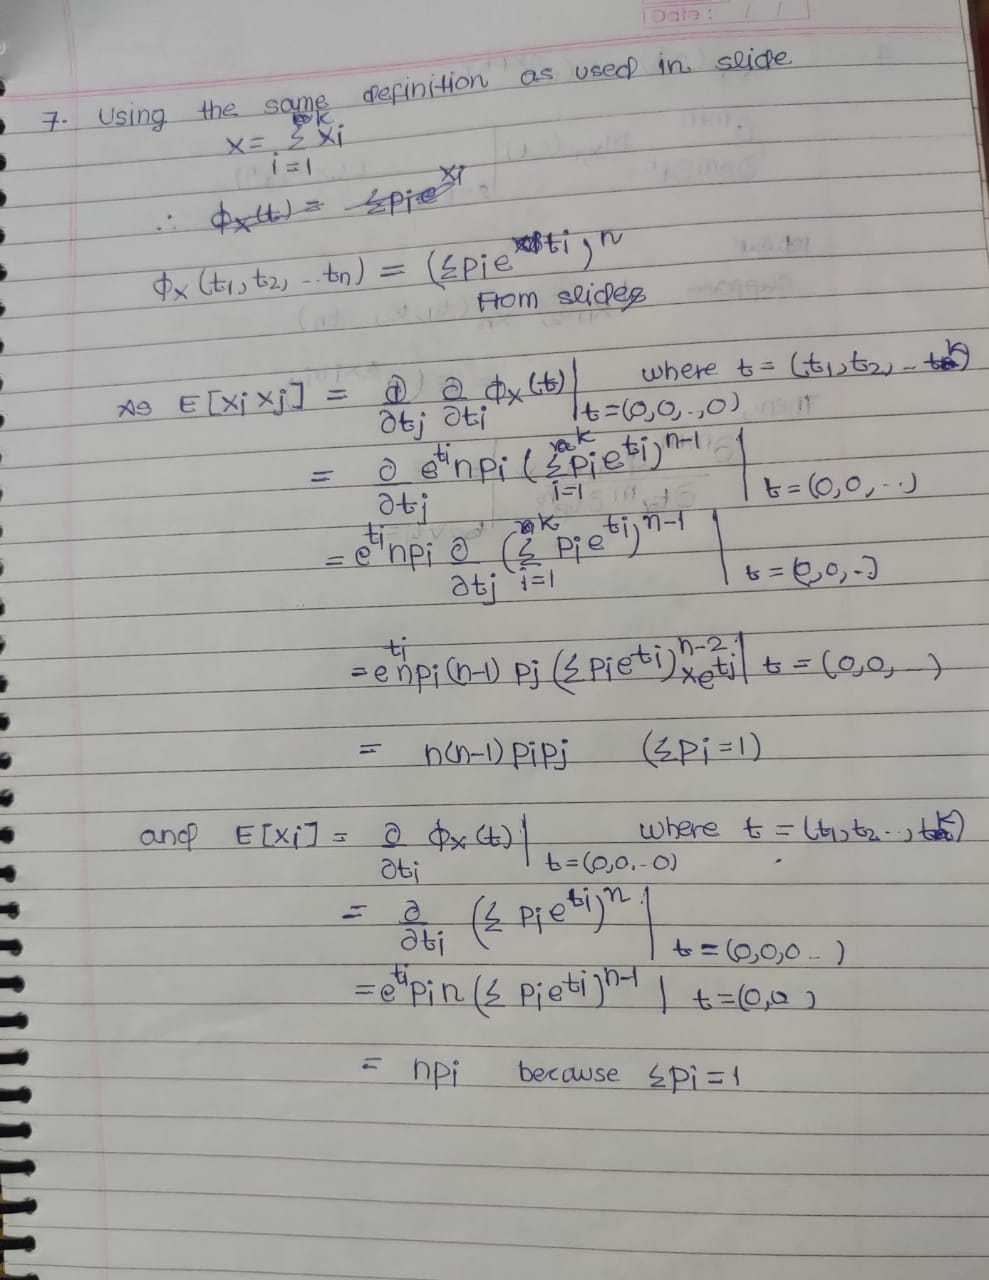 Date: / /
7. Using the same definition as used in slide
x = Σ xi
k
i=1
∴ ϕx(t) = Σpie^xi
ϕx(t1,t2, ...tn) = (Σpie^ti)^n
From slides
As E[xi xj] = ∂/∂tj ∂/∂ti ϕx(t) | t=(0,0,..,0) where t = (t1,t2, .. tk)
= ∂/∂tj e^ti npi (Σ_{i=1}^k pie^ti)^n-1 | t = (0,0, ..)
= e^ti npi ∂/∂tj (Σ_{i=1}^k pie^ti)^n-1 | t = (0,0,..)
= e^ti npi (n-1) pj (Σ pie^ti)^n-2 x e^tj | t = (0,0, ..)
= n(n-1) pipj (Σpi = 1)
and E[xi] = ∂/∂ti ϕx(t) | t=(0,0,..0) where t = (t1,t2 .., tk)
= ∂/∂ti (Σ pie^ti)^n | t = (0,0,0 ..)
= e^ti pi n (Σ pie^ti)^n-1 | t=(0,0 )
= npi because Σpi = 1